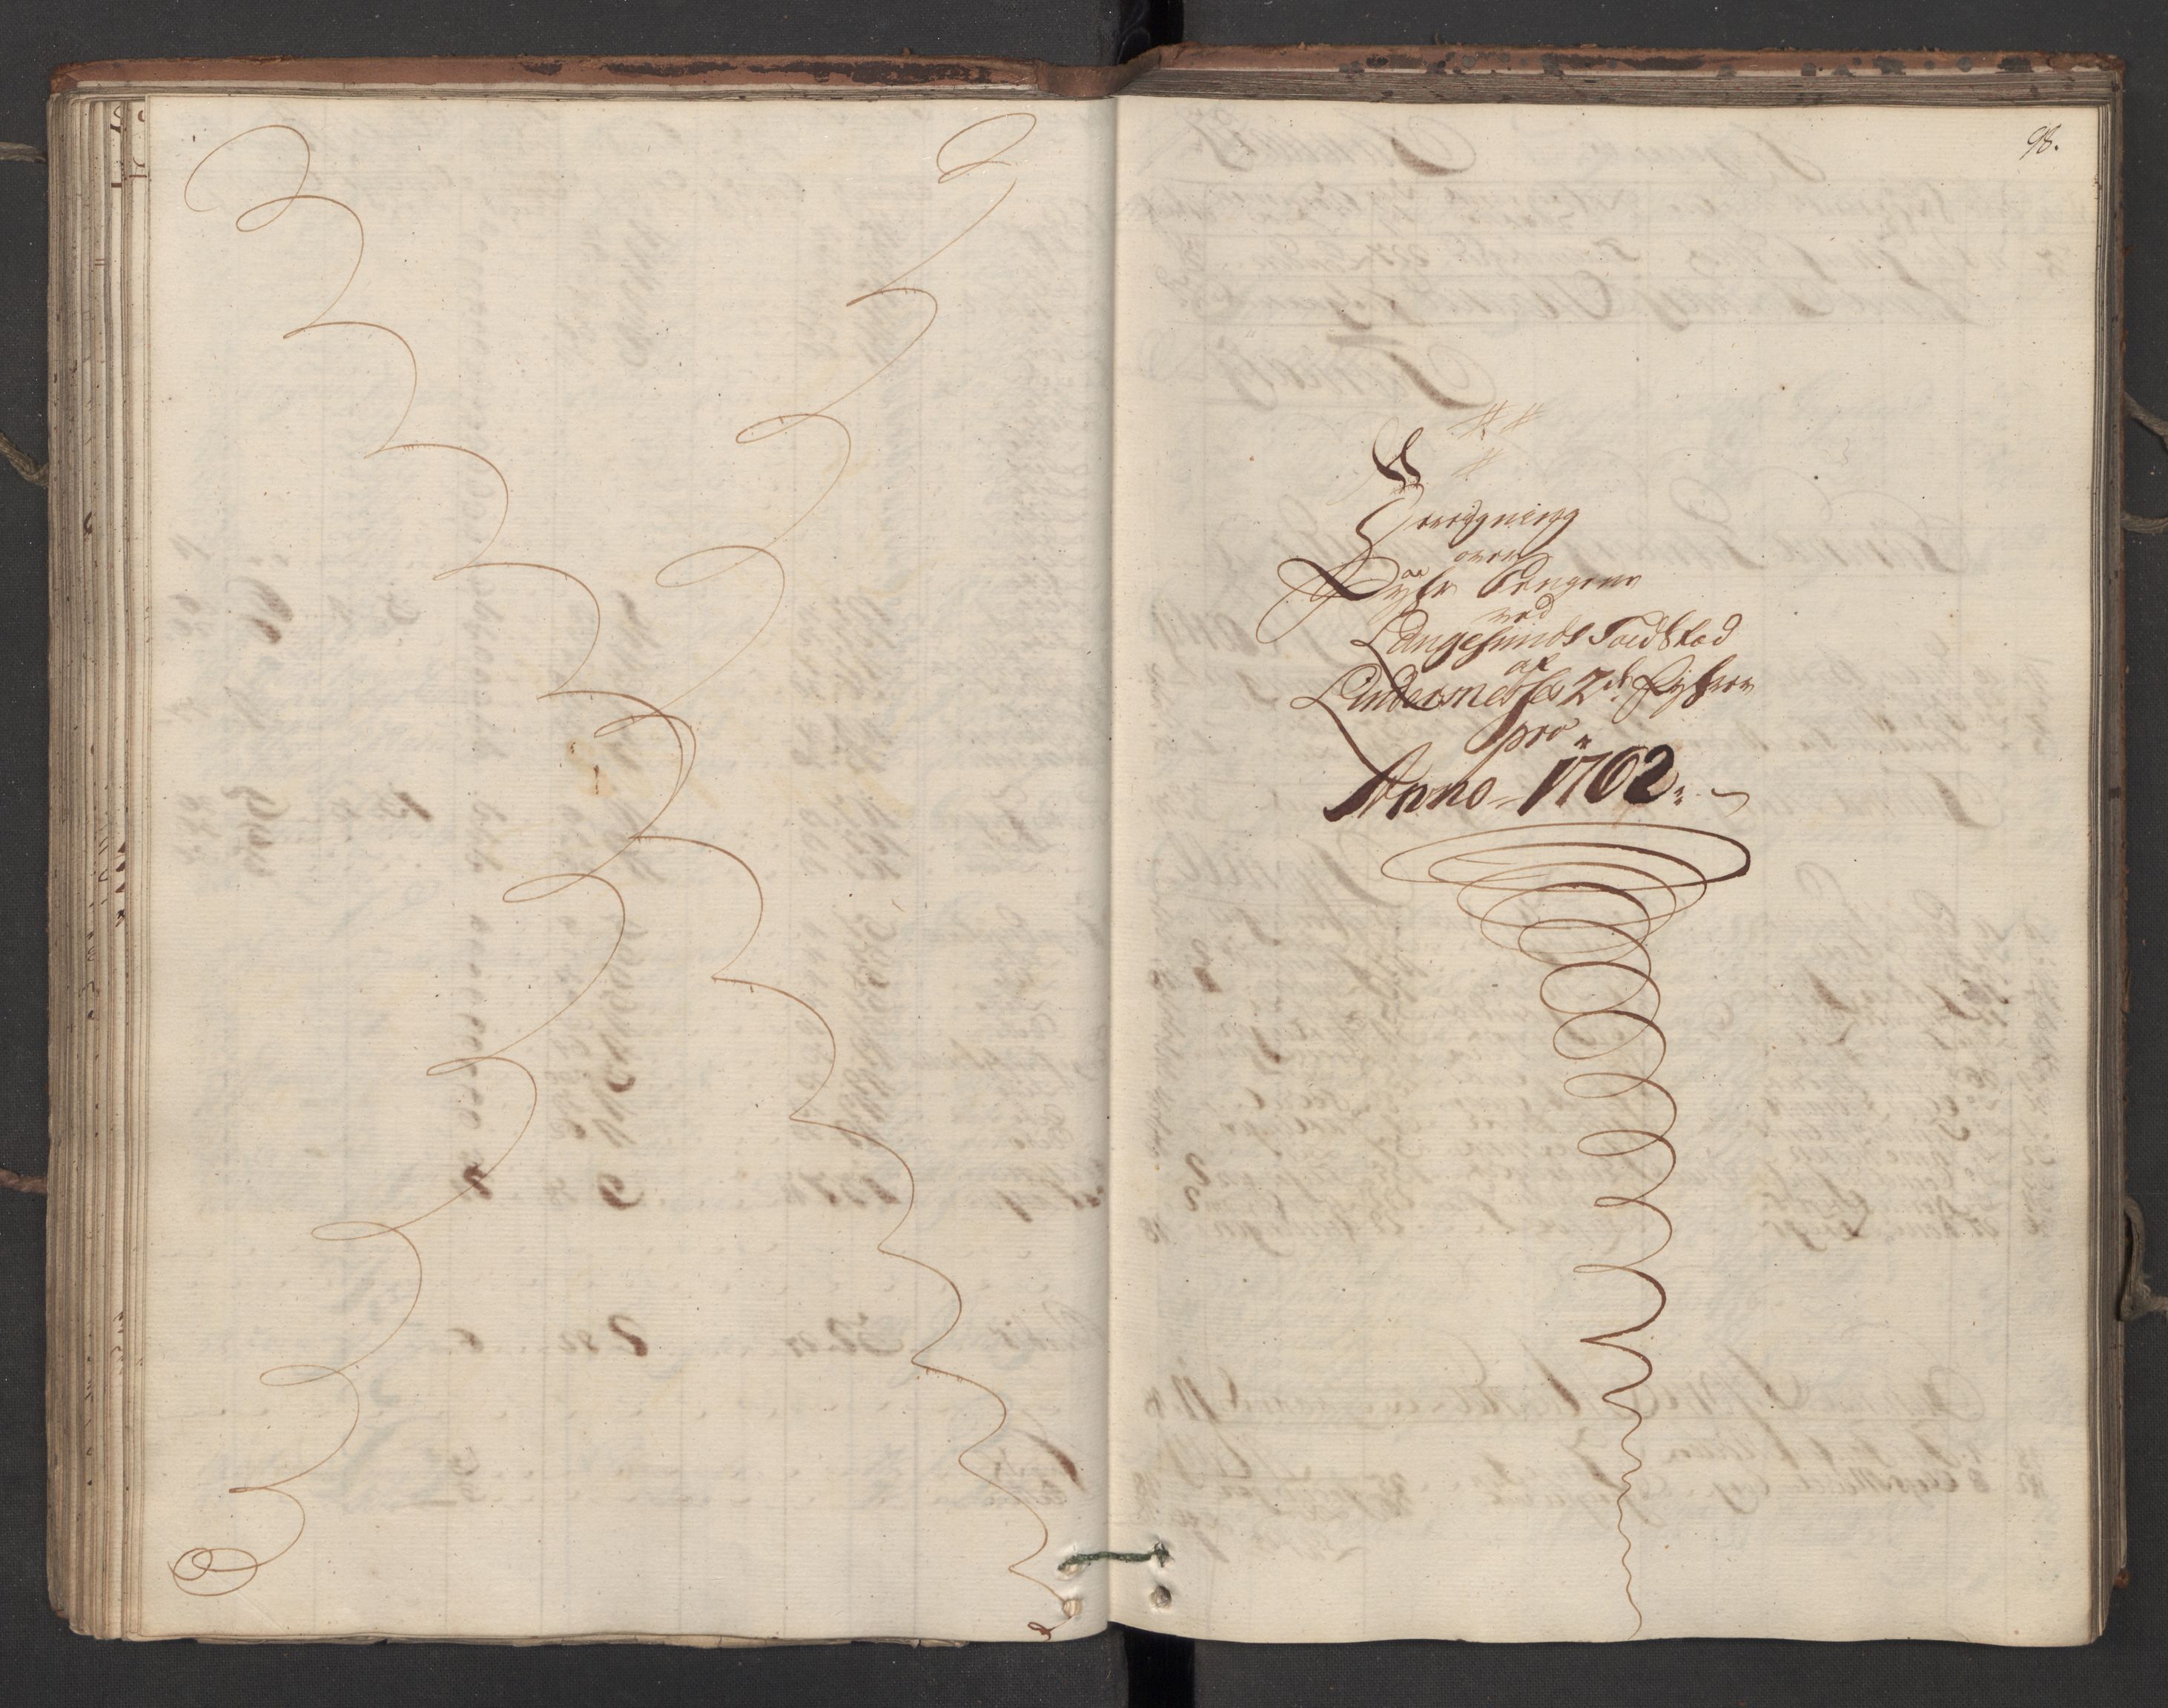 98.
Beregning
over
Fyhr Pengene
ved
Langesunds Toldsted
af
Lindesness 2de Fyhrer
pro
Anno 1762.